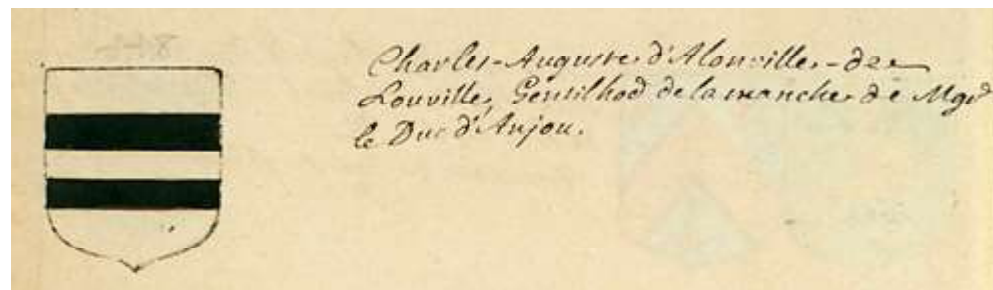 Charles-Auguste d'Alonville-de
Louville, Gentilhoē de la manche de Mgr
le Duc d'Anjou.